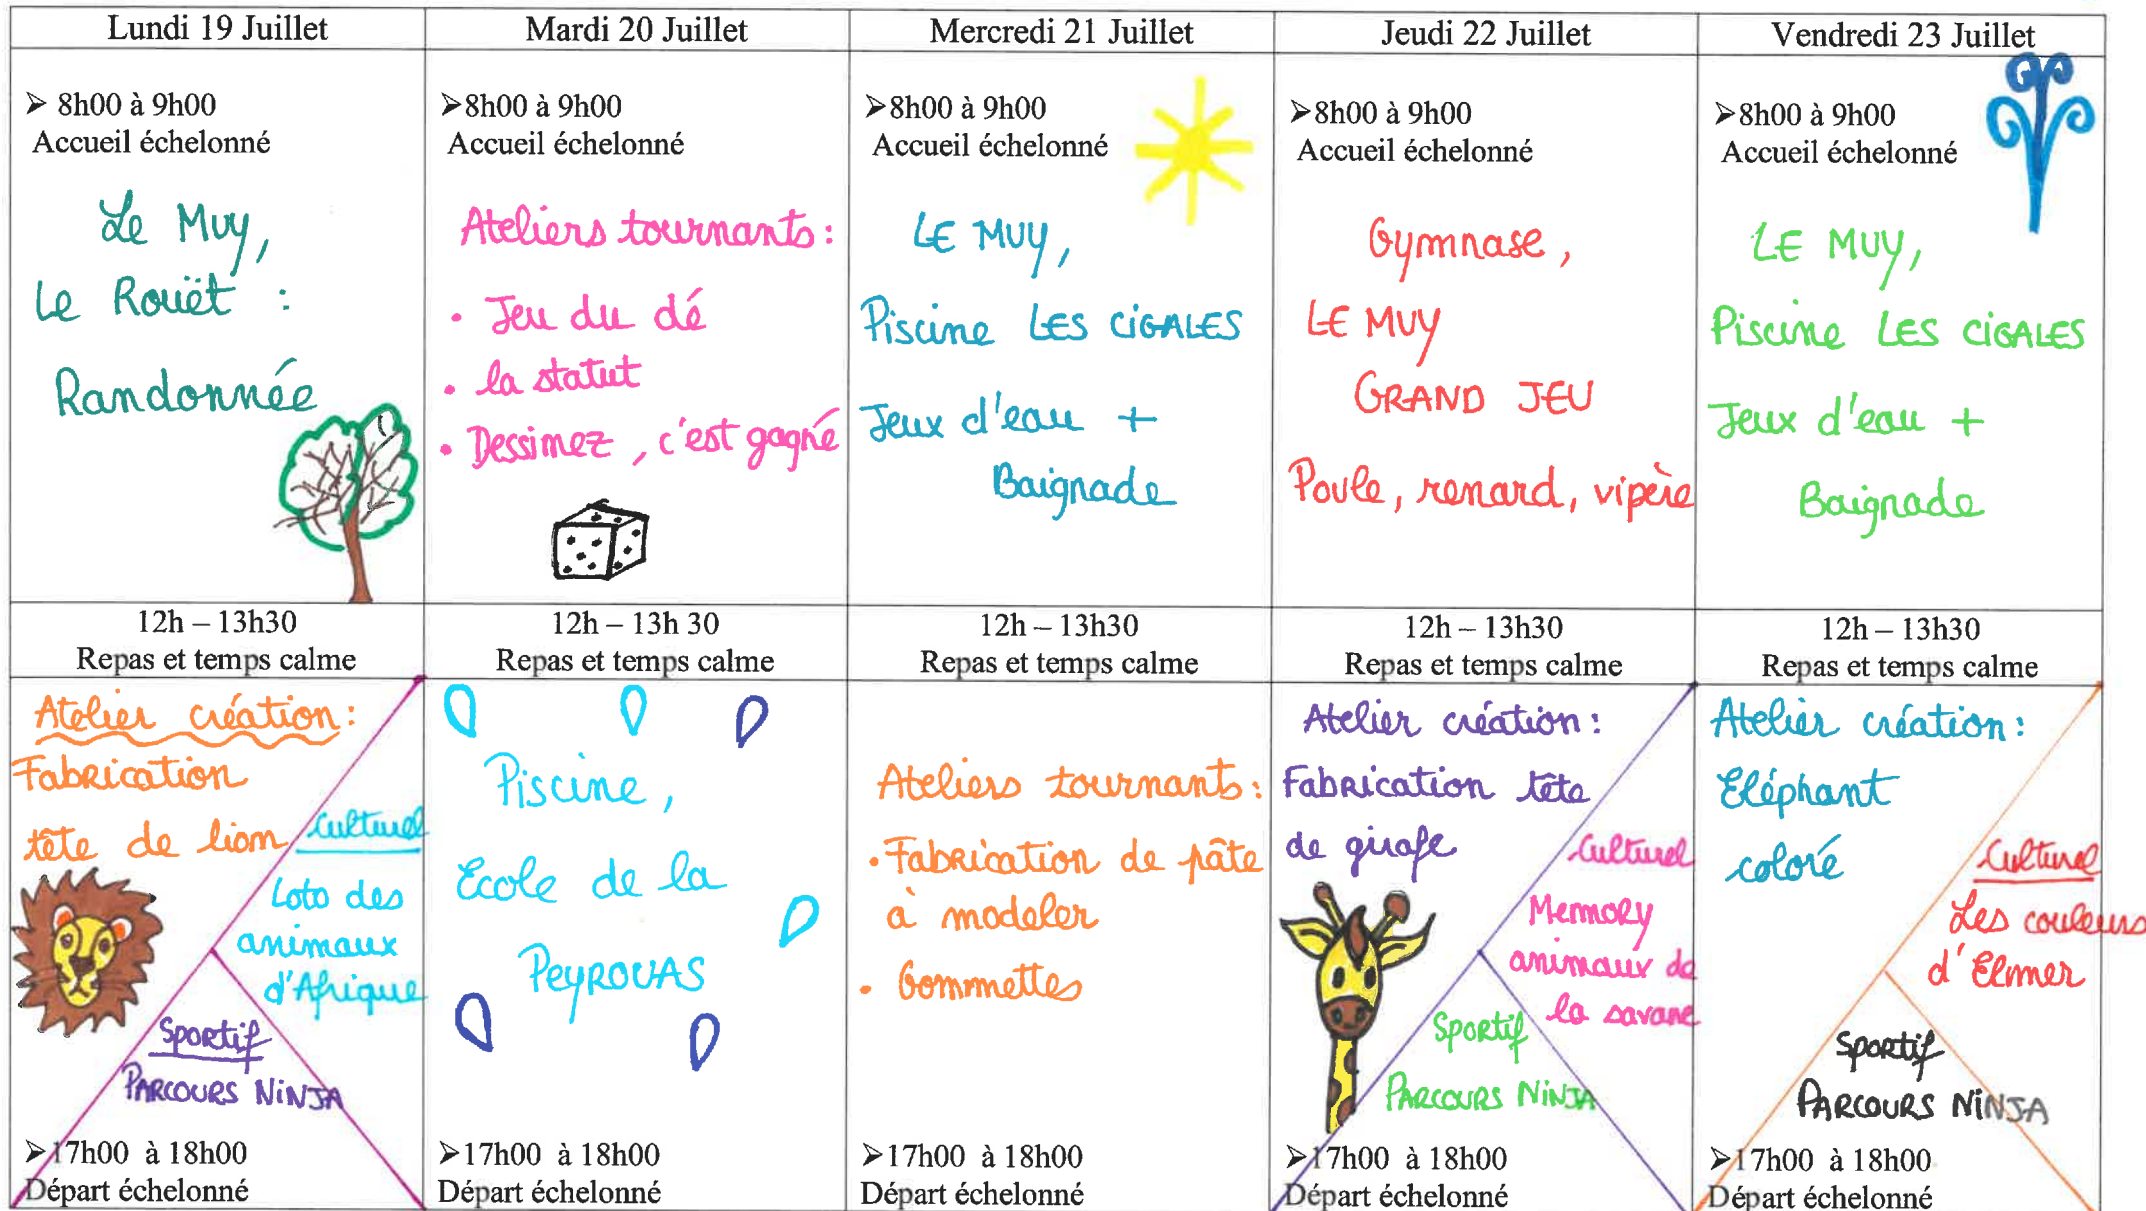 Lundi 19 Juillet
Mardi 20 Juillet
Mercredi 21 Juillet
Jeudi 22 Juillet
Vendredi 23 Juillet
➢ 8h00 à 9h00
Accueil échelonné
Le Muy,
Le Rouët :
Randonnée
➢8h00 à 9h00
Accueil échelonné
Ateliers tournants :
• Jeu du dé
• la statut
• Dessinez, c'est gagné
➢8h00 à 9h00
Accueil échelonné
LE MUY,
Piscine LES CiGALES
Jeux d'eau +
Baignade
➢8h00 à 9h00
Accueil échelonné
Gymnase,
LE MUY
GRAND JEU
Poule, renard, vipère
➢8h00 à 9h00
Accueil échelonné
LE MUY,
Piscine LES CiGALES
Jeux d'eau +
Baignade
12h – 13h30
Repas et temps calme
12h – 13h 30
Repas et temps calme
12h – 13h30
Repas et temps calme
12h – 13h30
Repas et temps calme
12h – 13h30
Repas et temps calme
Atelier création :
Fabrication
tête de lion
Culturel
Loto des
animaux
d'Afrique
Sportif
PARCOURS NiNJA
➢17h00 à 18h00
Départ échelonné
Piscine,
Ecole de la
PEYROUAS
➢17h00 à 18h00
Départ échelonné
Ateliers tournants :
• Fabrication de pâte
à modeler
• Gommettes
➢17h00 à 18h00
Départ échelonné
Atelier création :
Fabrication tête
de girafe
Culturel
Memory
animaux de
la savane
Sportif
PARCOURS NiNJA
➢17h00 à 18h00
Départ échelonné
Atelier création :
Eléphant
coloré
Culturel
Les couleurs
d'Elmer
Sportif
PARCOURS NiNJA
➢17h00 à 18h00
Départ échelonné